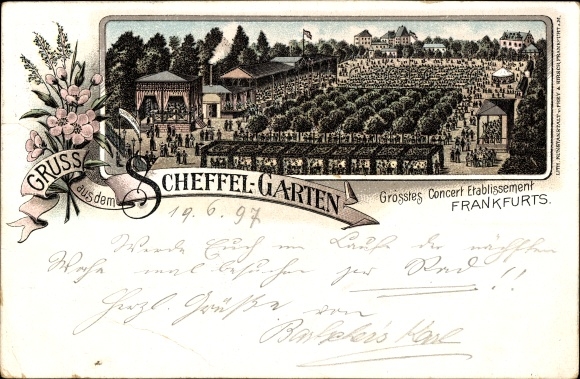 GRUSS
aus dem
SCHEFFEL-GARTEN
Grösstes Concert Etablissement
FRANKFURTS.
LITH. KUNSTANSTALT v. FREY & HIRSCH, FRANKFURT a.M.
19.6.97
Werde Euch im Laufe der nächsten
Woche mal besuchen per Rad!!
Herzl. Grüße von
Karl